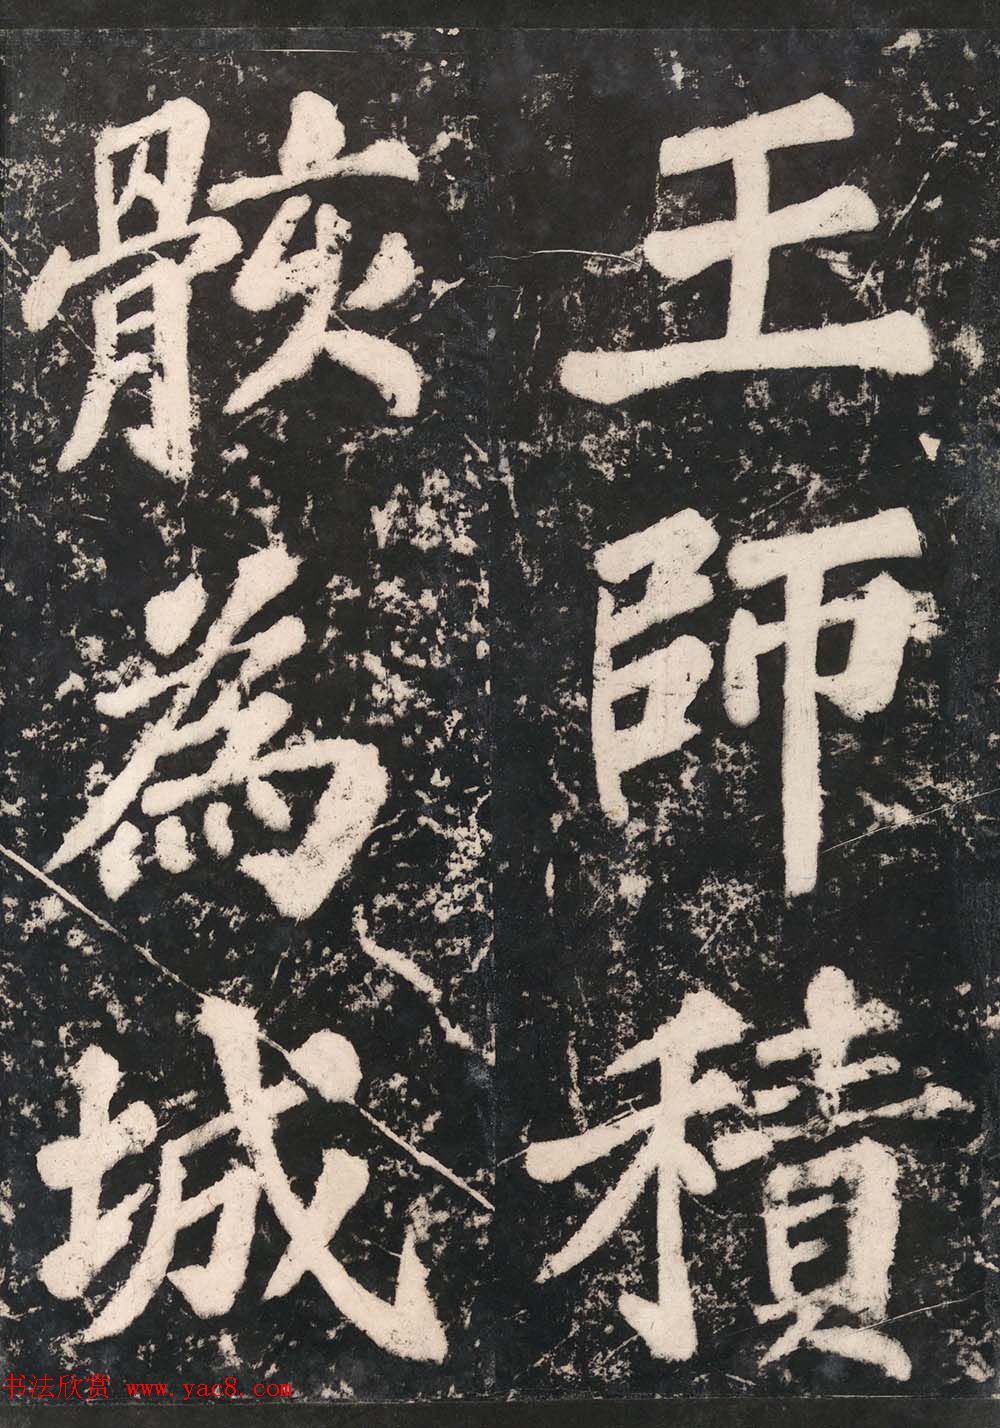 王師積
骸為城
书法欣赏 www.yac8.com